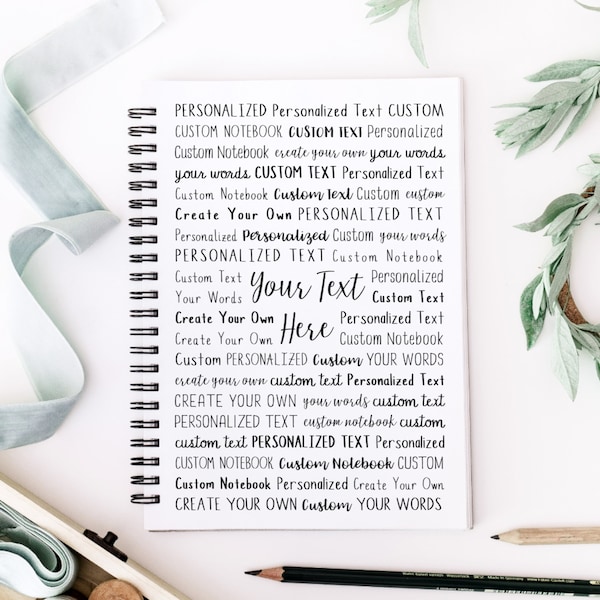 PERSONALIZED Personalized Text CUSTOM
CUSTOM NOTEBOOK CUSTOM TEXT Personalized
Custom Notebook create your own your words
your words CUSTOM TEXT Personalized Text
Custom Notebook Custom Text Custom custom
Create Your Own PERSONALIZED TEXT
Personalized Personalized Custom your words
PERSONALIZED TEXT Custom Notebook
Custom Text Your Text Personalized
Your Words Custom Text
Create Your Own Here Personalized Text
Create Your Own Custom Notebook
Custom PERSONALIZED Custom YOUR WORDS
create your own custom text Personalized Text
CREATE YOUR OWN your words custom text
PERSONALIZED TEXT custom notebook custom
custom text PERSONALIZED TEXT Personalized
CUSTOM NOTEBOOK Custom Notebook CUSTOM
Custom Notebook Personalized Create Your Own
CREATE YOUR OWN Custom YOUR WORDS